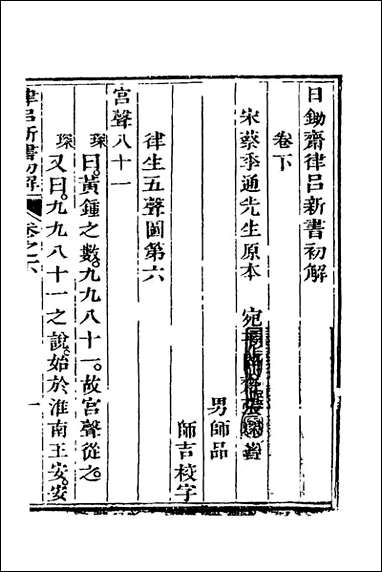 日鋤齋律呂新書初解
卷下
宋蔡季通先生原本 宛
男師品
師吉校字
律生五聲圖第六
宮聲八十一
琛曰。黃鍾之數。九九八十一。故宮聲從之。
琛又曰。九九八十一之說。始於淮南王安。安
律呂新書初解 卷之下 一